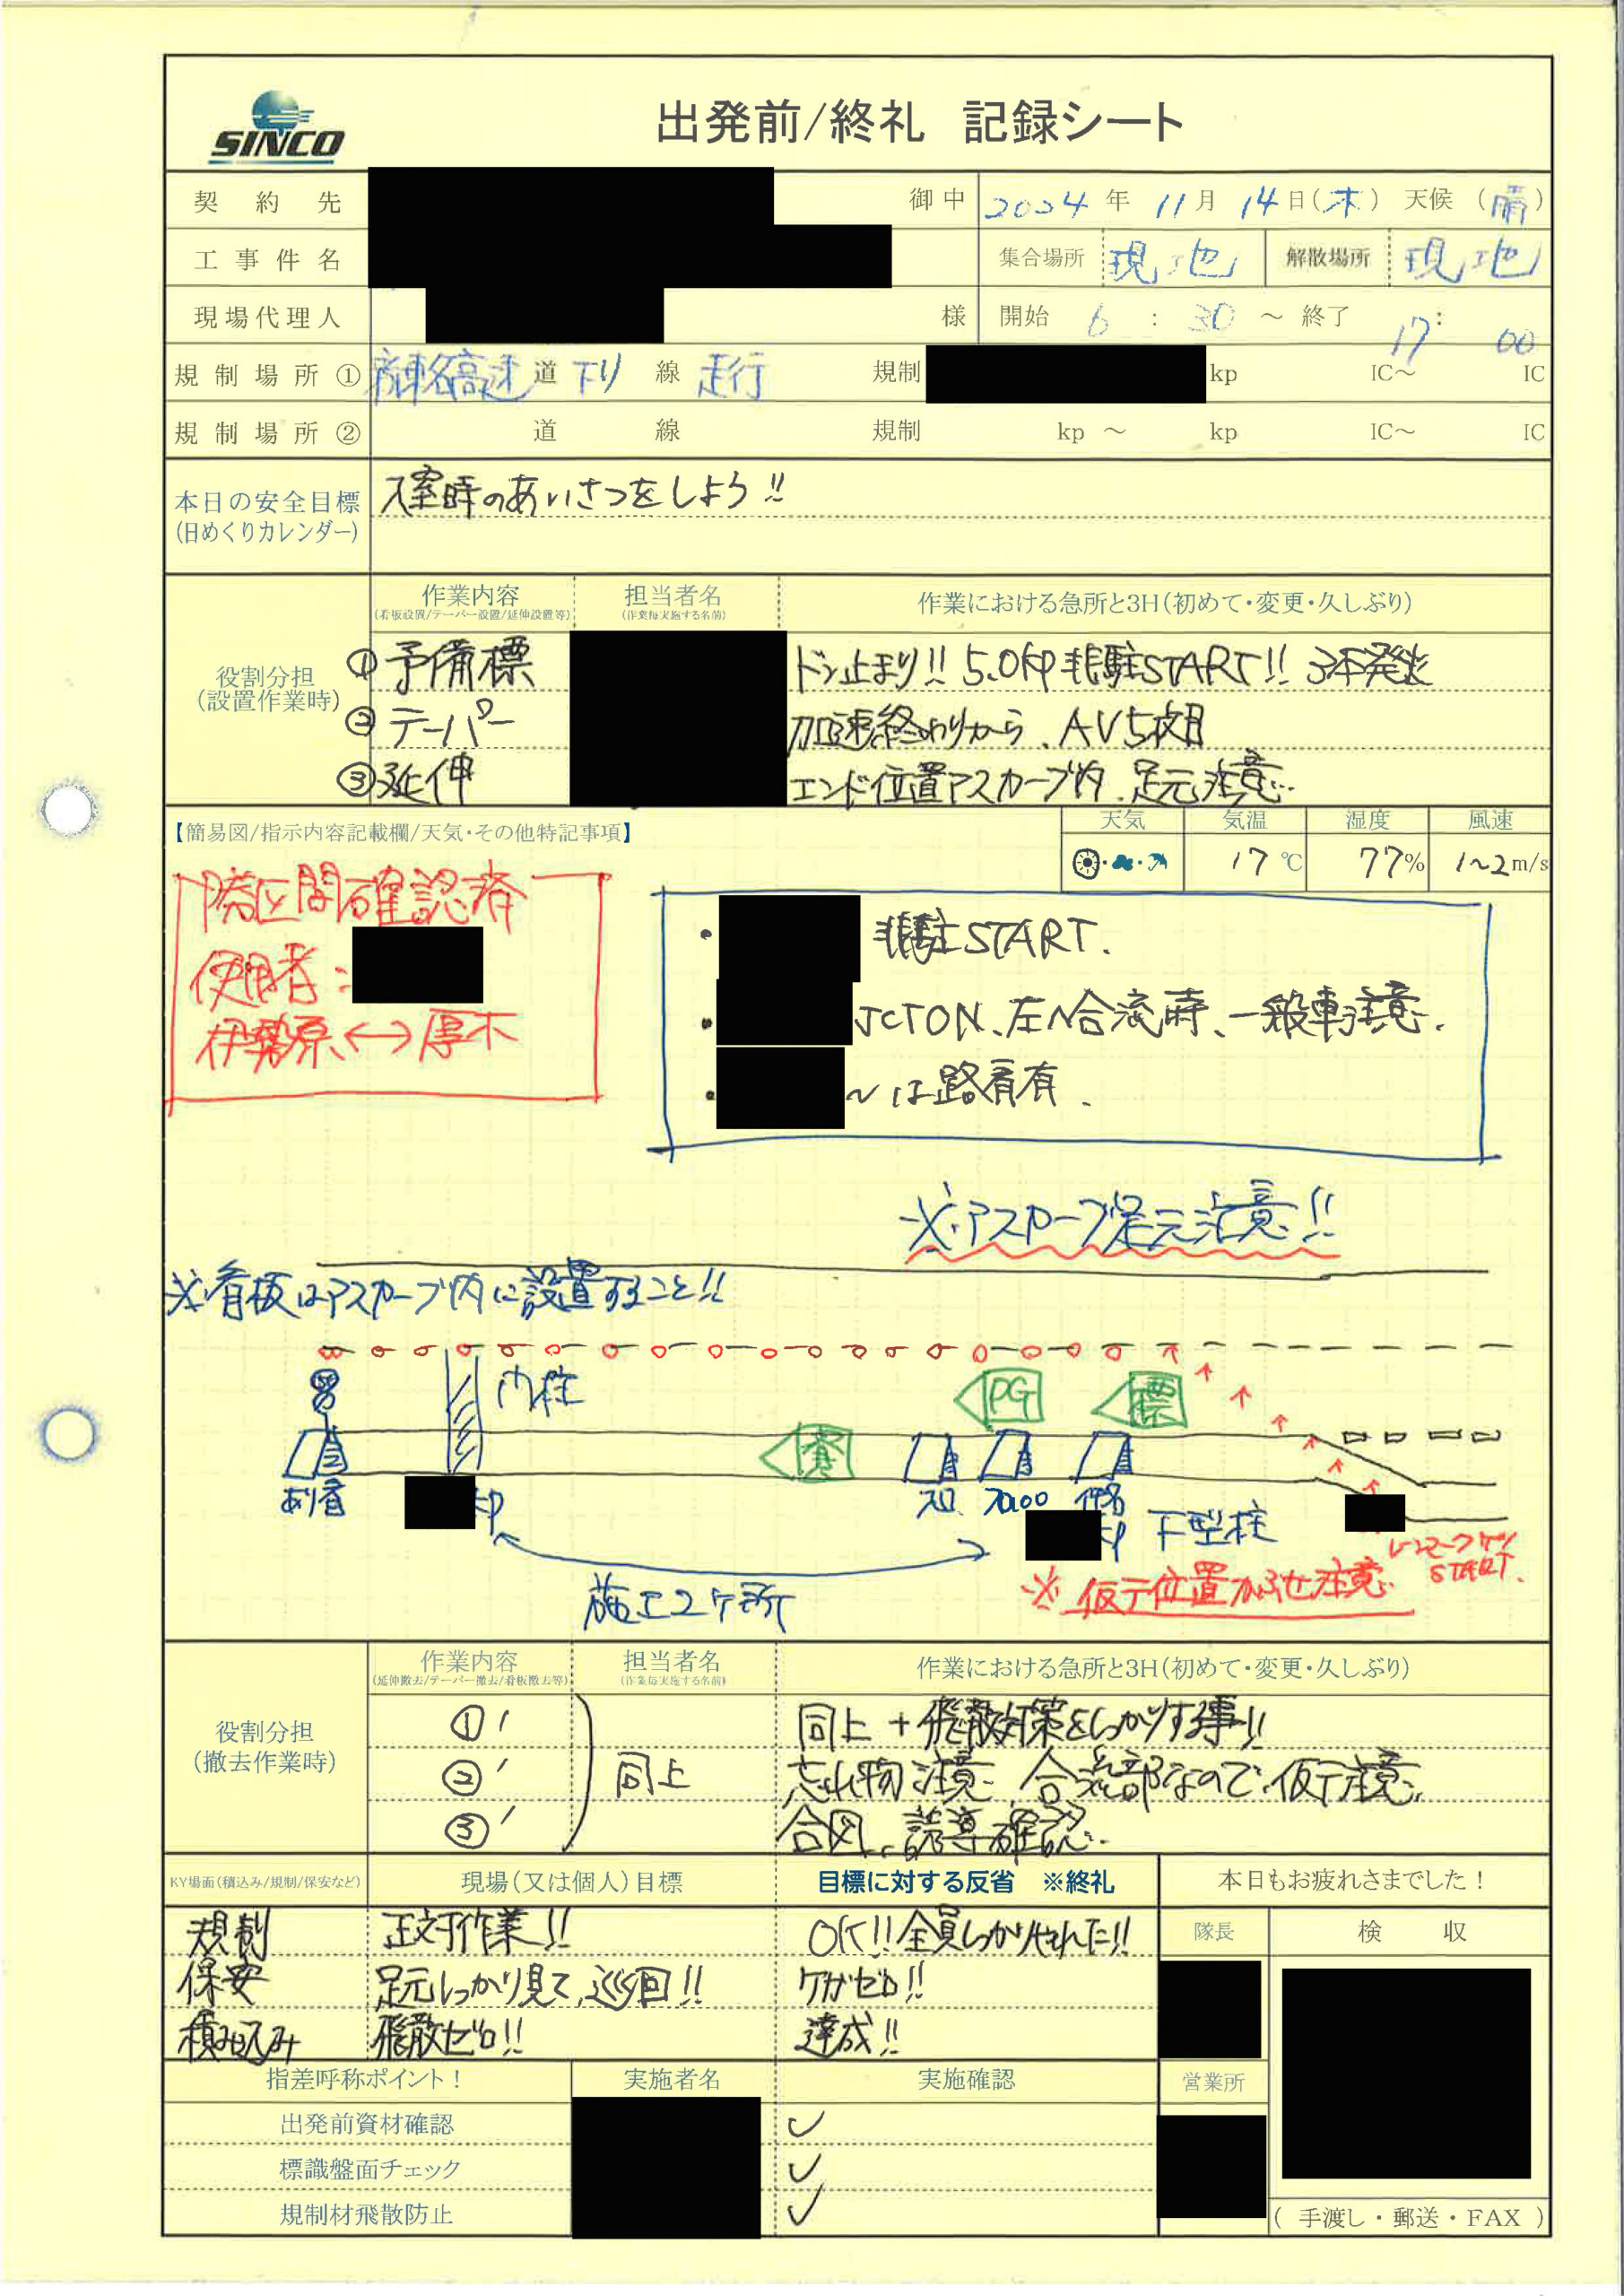 SINCO
出発前/終礼 記録シート
契約先 御中 2024年 11月 14日(木) 天候 (晴)
工事件名 集合場所 現地 解散場所 現地
現場代理人 様 開始 6 : 30 ～ 終了 17 : 00
規制場所① 新東名高速道 下り 線 走行 規制 kp IC～ IC
規制場所② 道 線 規制 kp ～ kp IC～ IC
本日の安全目標 入室時のあいさつをしよう!!
(日めくりカレンダー)
作業内容 担当者名 作業における急所と3H(初めて・変更・久しぶり)
(看板設置/テーパー設置/延伸設置等) (作業毎実施する名前)
役割分担
(設置作業時)
① 予備標 ドン止まり!! 5.0kp 非駐START!! 3本発炎
② テーパー 加速終わりから、AV5枚目
③ 延伸 エンド位置アスカーブ内、足元注意
【簡易図/指示内容記載欄/天気・その他特記事項】
天気 気温 湿度 風速
17℃ 77% 1～2m/s
隣区間確認済
使用者:
伊勢原↔厚木
・ 非駐START.
・ JCTON、左へ合流時、一般車注意.
・ ～は路肩有.
※アスカーブ足元注意!!
※看板はアスカーブ内に設置すること!!
内柱
PG
標
あり省
kp
kp 下型柱
START.
施工2ヶ所
※仮テ位置かぶせ注意
作業内容 担当者名 作業における急所と3H(初めて・変更・久しぶり)
(延伸撤去/テーパー撤去/看板撤去等) (作業毎実施する名前)
役割分担
(撤去作業時)
①' 同上 + 飛散対策をしっかりする事!!
②' 同上 忘れ物注意 合流部なので、仮テ注意.
③' 合図、誘導確認
KY場面(積込み/規制/保安など) 現場(又は個人)目標 目標に対する反省 ※終礼 本日もお疲れさまでした!
規制 正対作業!! OK!!全員しっかりされた!! 隊長 検収
保安 足元しっかり見て、巡回!! ケガゼロ!!
積み込み 飛散ゼロ!! 達成!!
指差呼称ポイント! 実施者名 実施確認 営業所
出発前資材確認 ✓
標識盤面チェック ✓
規制材飛散防止 ✓
(手渡し・郵送・FAX)